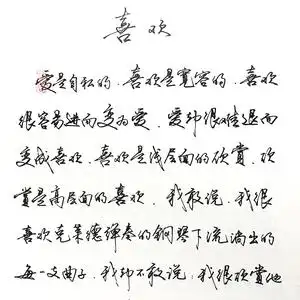 喜欢
爱是自私的、喜欢是宽容的、喜欢
很容易进而变为爱、爱却很难退而
变成喜欢、喜欢是浅层面的欣赏、欣
赏是高层面的喜欢、我敢说、我很
喜欢克莱德弹奏的钢琴下流淌出的
每一支曲子、我却不敢说、我很欣赏他